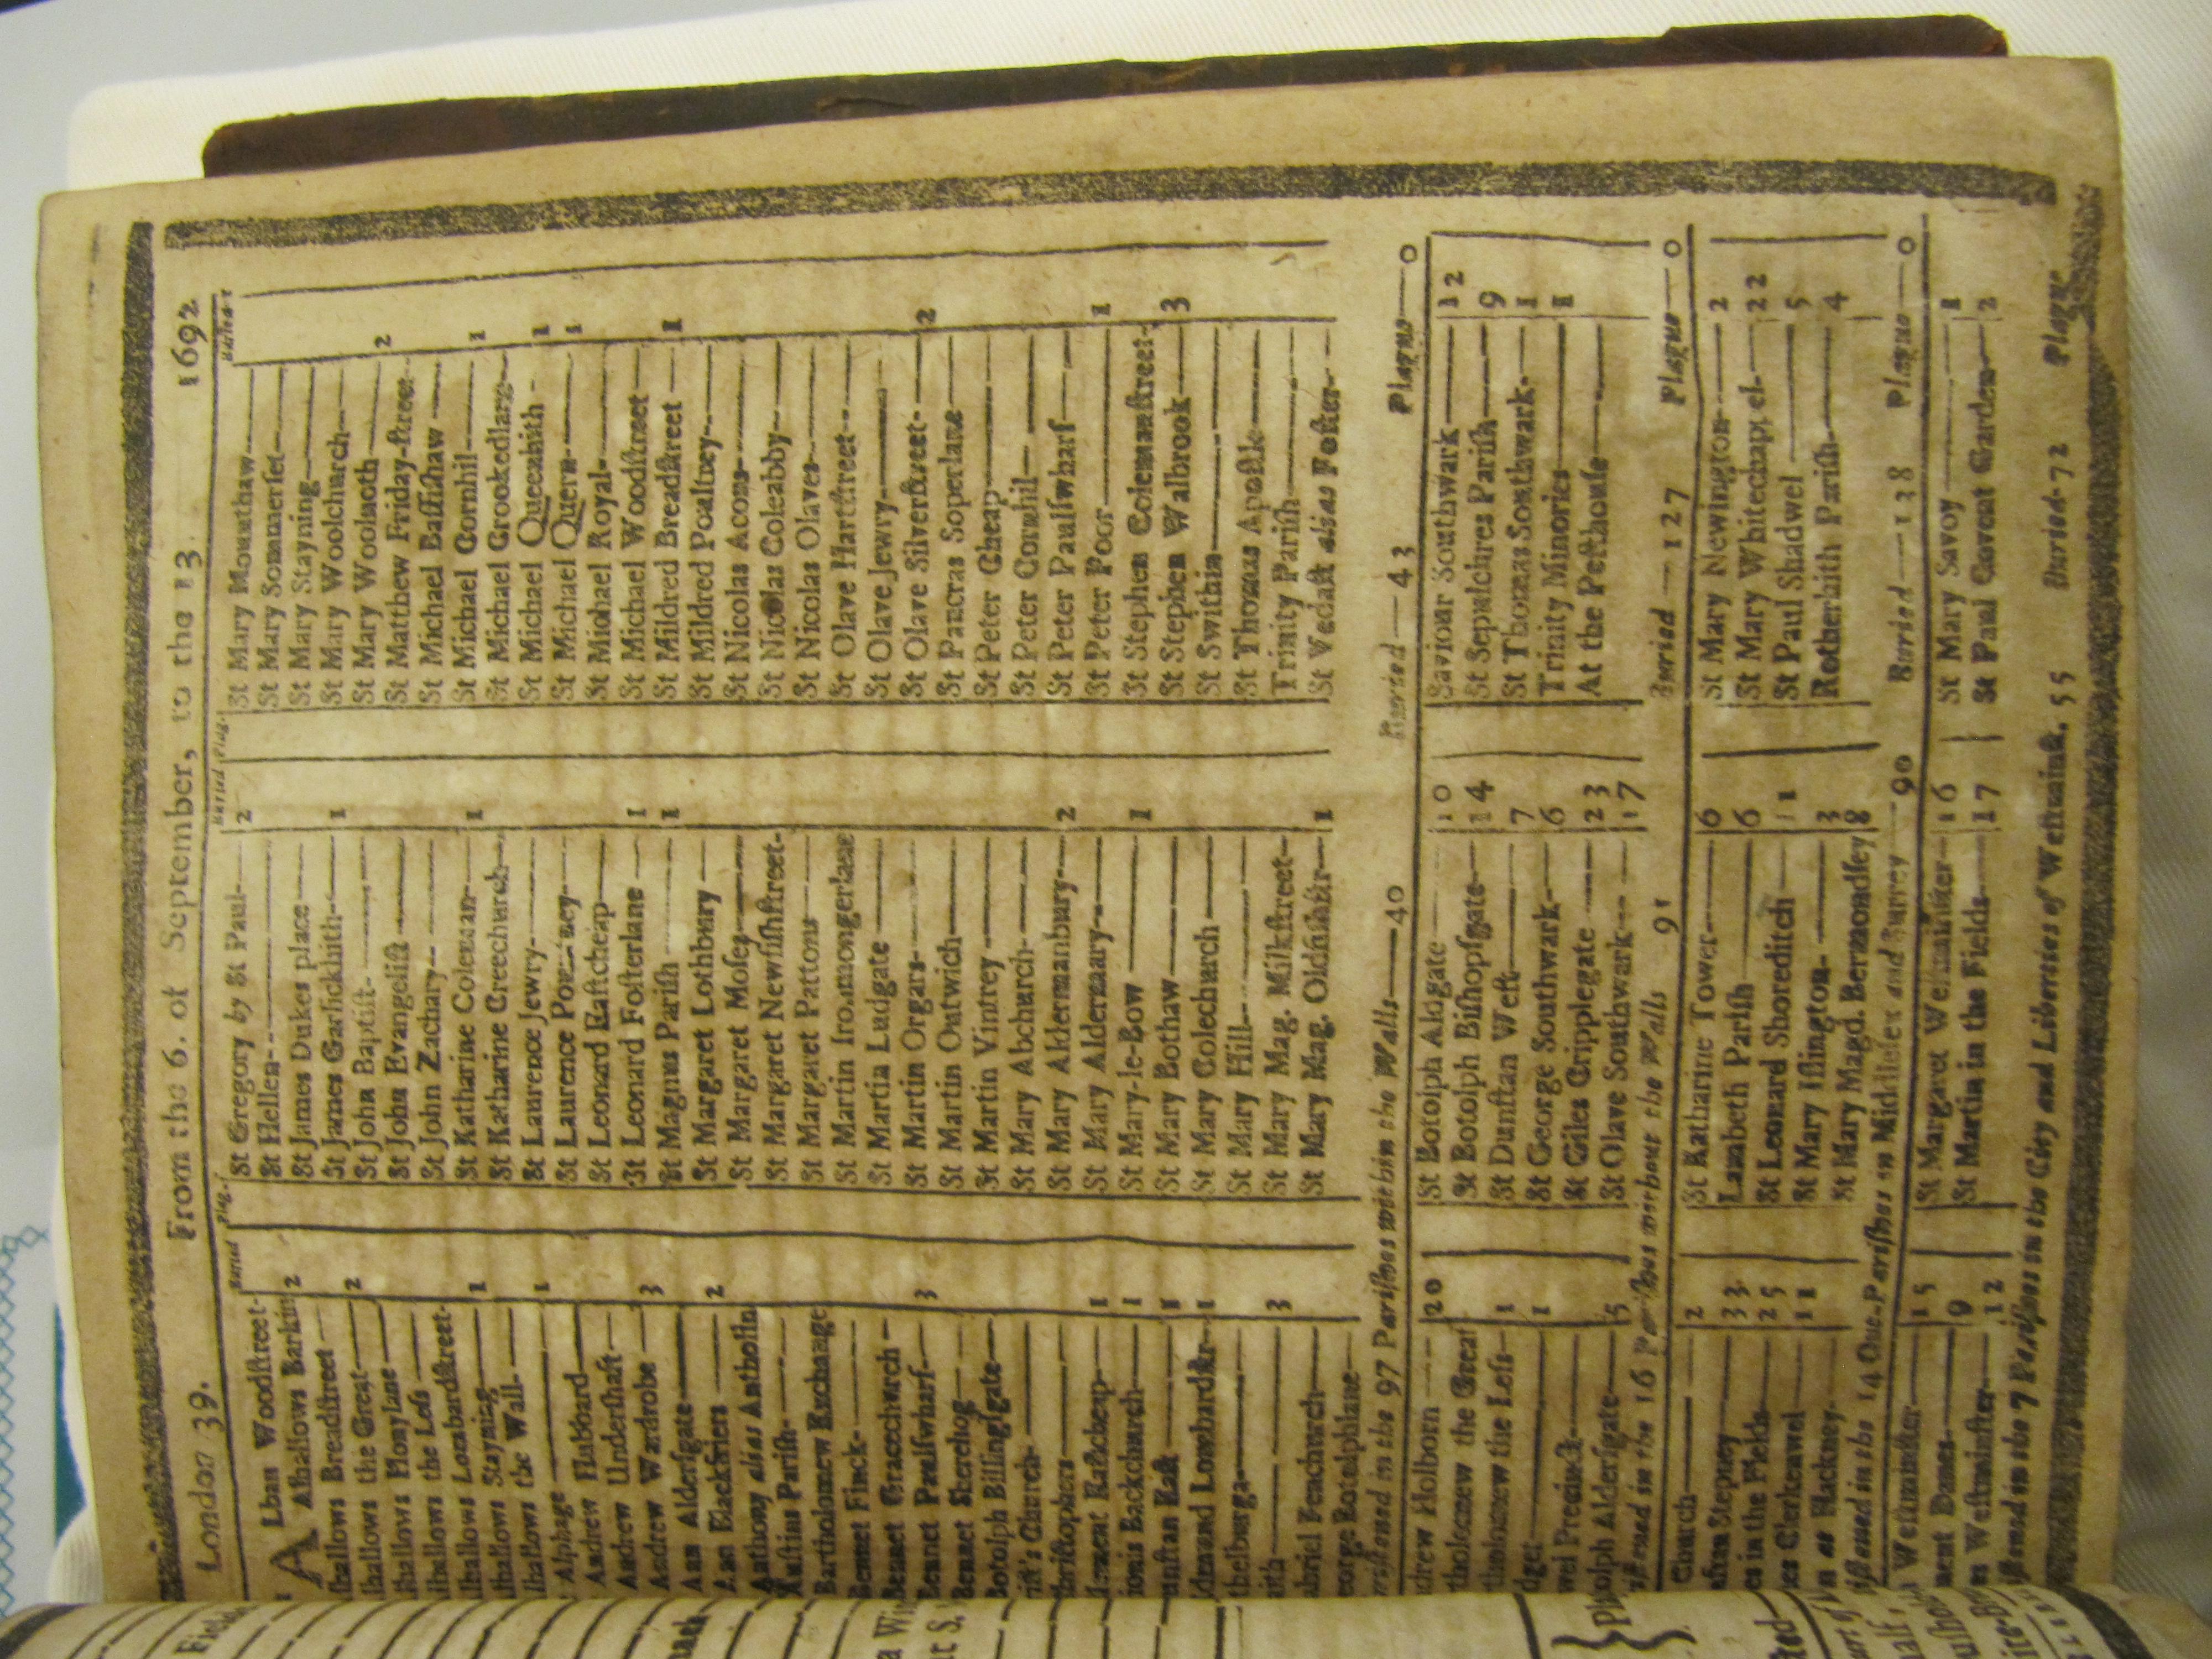 London 39. From the 6. of September, to the 13. 1692
Buried Plag.
ALban Woodstreet-
Alhallows Barking 2
lhallows Breadstreet
lhallows the Great 2
lhallows Honylane
lhallows the Less
lhallows Lombardstreet-
lhallows Stayning 1
lhallows the Wall-
Alphage 1
Andrew Hubbard
Andrew Undershaft
Andrew Wardrobe 3
Ann Aldersgate
Ann Blackfriers 2
Anthony alias Antholin
Austins Parish
Bartholomew Exchange
Bennet Finck
Bennet Gracechurch
Bennet Paulswharf 3
Bennet Sherehog
Botolph Billingsgate
ist's Church
hristophers
lement Eastcheap 1
ionis Backchurch 1
unstan East 1
dmund Lombardstr 1
thelburga
aith 3
abriel Fenchurch
eorge Botolphlane
Buried Plag.
St Gregory by St Paul 2
St Hellen
St James Dukes place
St James Garlickhith 1
St John Baptist
St John Evangelist
St John Zachary
St Katharine Coleman 1
St Katharine Creechurch
St Laurence Jewry
St Laurence Pountney
St Leonard Eastcheap
St Leonard Fosterlane 1
St Magnus Parish 1
St Margaret Lothbury
St Margaret Moses
St Margaret Newfishstreet-
St Margaret Pattons
St Martin Ironmongerlane
St Martin Ludgate
St Martin Orgars
St Martin Outwich
St Martin Vintrey
St Mary Abchurch
St Mary Aldermanbury 2
St Mary Aldermary
St Mary-le-Bow 1
St Mary Bothaw
St Mary Colechurch
St Mary Hill
St Mary Mag. Milkstreet
St Mary Mag. Oldfishstr 1
Buried
St Mary Mounthaw
St Mary Sommerset
St Mary Stayning
St Mary Woolchurch
St Mary Woolnoth 2
St Matthew Friday-street
St Michael Bassishaw
St Michael Cornhil 1
St Michael Crookedlane
St Michael Queenhith 1
St Michael Quern 1
St Michael Royal
St Michael Woodstreet
St Mildred Breadstreet 1
St Mildred Poultney
St Nicolas Acons
St Nicolas Coleabby
St Nicolas Olaves
St Olave Hartstreet
St Olave Jewry
St Olave Silverstreet 2
St Pancras Soperlane
St Peter Cheap
St Peter Cornhil
St Peter Paulswharf
St Peter Poor 1
St Stephen Colemanstreet
St Stephen Walbrook 3
St Swithin
St Thomas Apostle
Trinity Parish
St Vedast alias Foster
ristned in the 97 Parishes within the Walls 40 Buried 43 Plague 0
drew Holborn 20
tholomew the Great
tholomew the Less 1
dget 1
wel Precinct
Botolph Aldersgate 5
St Botolph Aldgate 10
St Botolph Bishopsgate 14
St Dunstan West 7
St George Southwark 6
St Giles Cripplegate 23
St Olave Southwark 17
Saviour Southwark 12
St Sepulchres Parish 9
St Thomas Southwark 1
Trinity Minories 1
At the Pesthouse
istned in the 16 Parishes without the Walls 91 Buried 127 Plague 0
Church 2
nstan Stepney 33
es in the Fields 25
es Clerkenwel 11
n at Hackney
St Katharine Tower 6
Lambeth Parish 6
St Leonard Shoreditch 11
St Mary Islington 3
St Mary Magd. Bermondsey 8
St Mary Newington 2
St Mary Whitechappel 22
St Paul Shadwel 5
Rotherhith Parish 4
istned in the 14 Out-Parishes in Middlesex and Surrey 90 Buried 128 Plague 0
Westminster 15
ment Danes 9
es Westminster 12
St Margaret Westminster 16
St Martin in the Fields 17
St Mary Savoy 1
St Paul Covent Garden 2
istned in the 7 Parishes in the City and Liberties of Westminst. 55 Buried 72 Plague